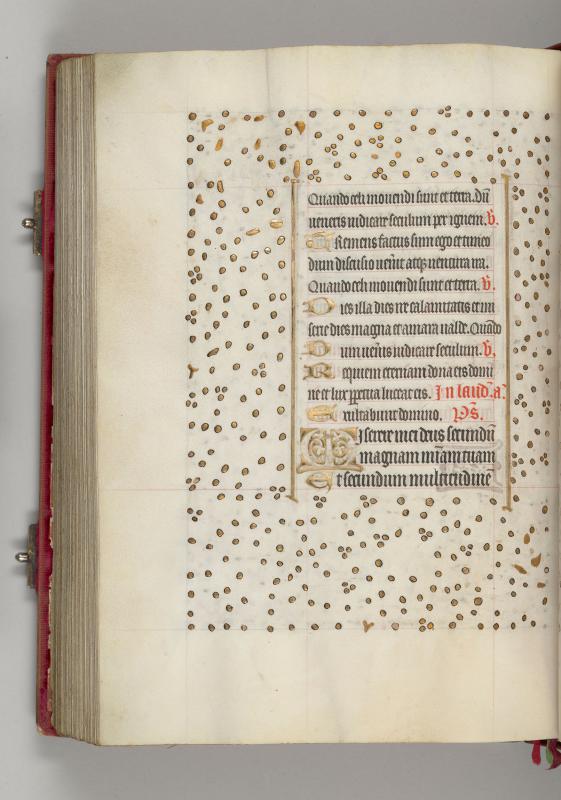 Quando celi mouendi sunt et terra. Dũ
ueneris iudicare seculum per ignem. v̄.
Tremens factus sum ego et timeo
dum discussio uen̄it atq; uentura ira.
Quando celi mouendi sunt et terra. v̄.
Dies illa dies ire calamitatis et mi
serie dies magna et amara ualde. Quãdo
Dum uen̄is iudicare seculum. v̄.
Requiem eternam dona eis domi
ne et lux ꝑpetua luceat eis. In laud̄. ã.
Exultabunt domino. Ps̄.
Miserere mei deus secundũ
magnam mĩam tuam
Et secundum multitudinẽ